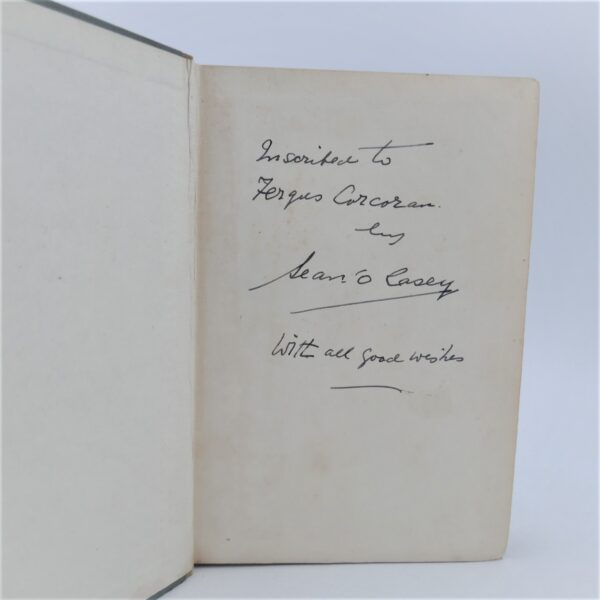 Inscribed to
Fergus Corcoran.
by
Sean O Casey
With all good wishes